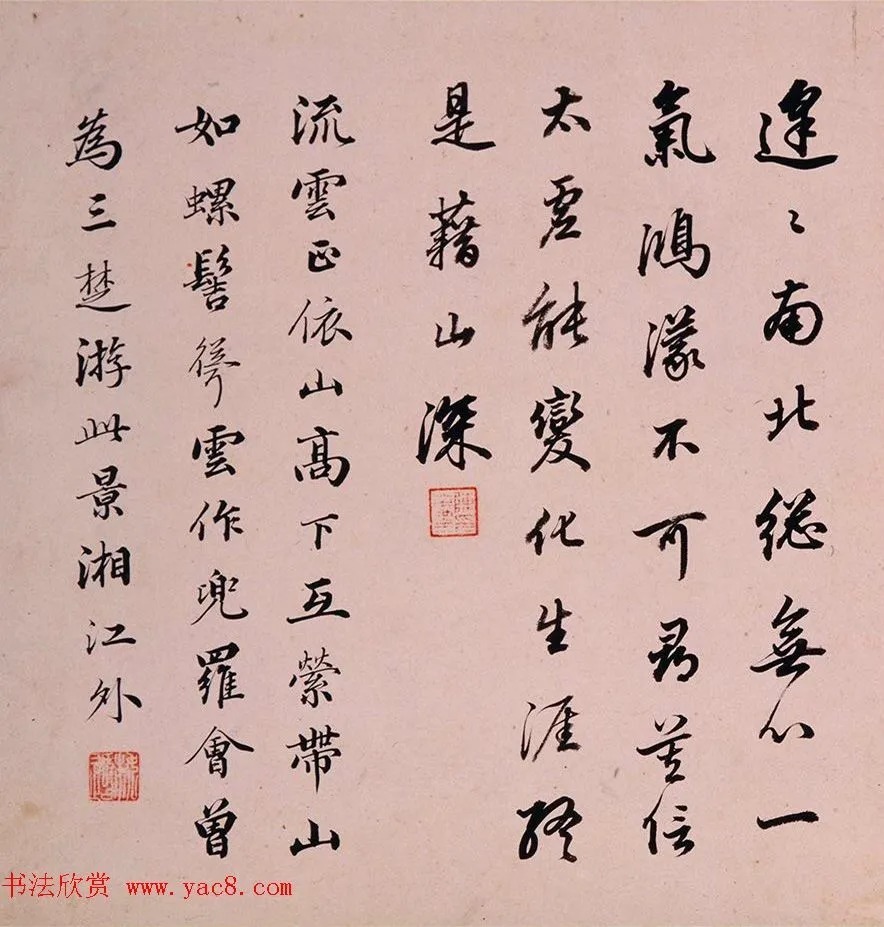 逢〻南北緫無心一
氣鴻濛不可尋莫信
太虛能變化生涯終
是藉山深
流雲正依山高下互縈帶山
如螺髻聳雲作兜羅會曾
為三楚游此景湘江外
书法欣赏 www.yac8.com